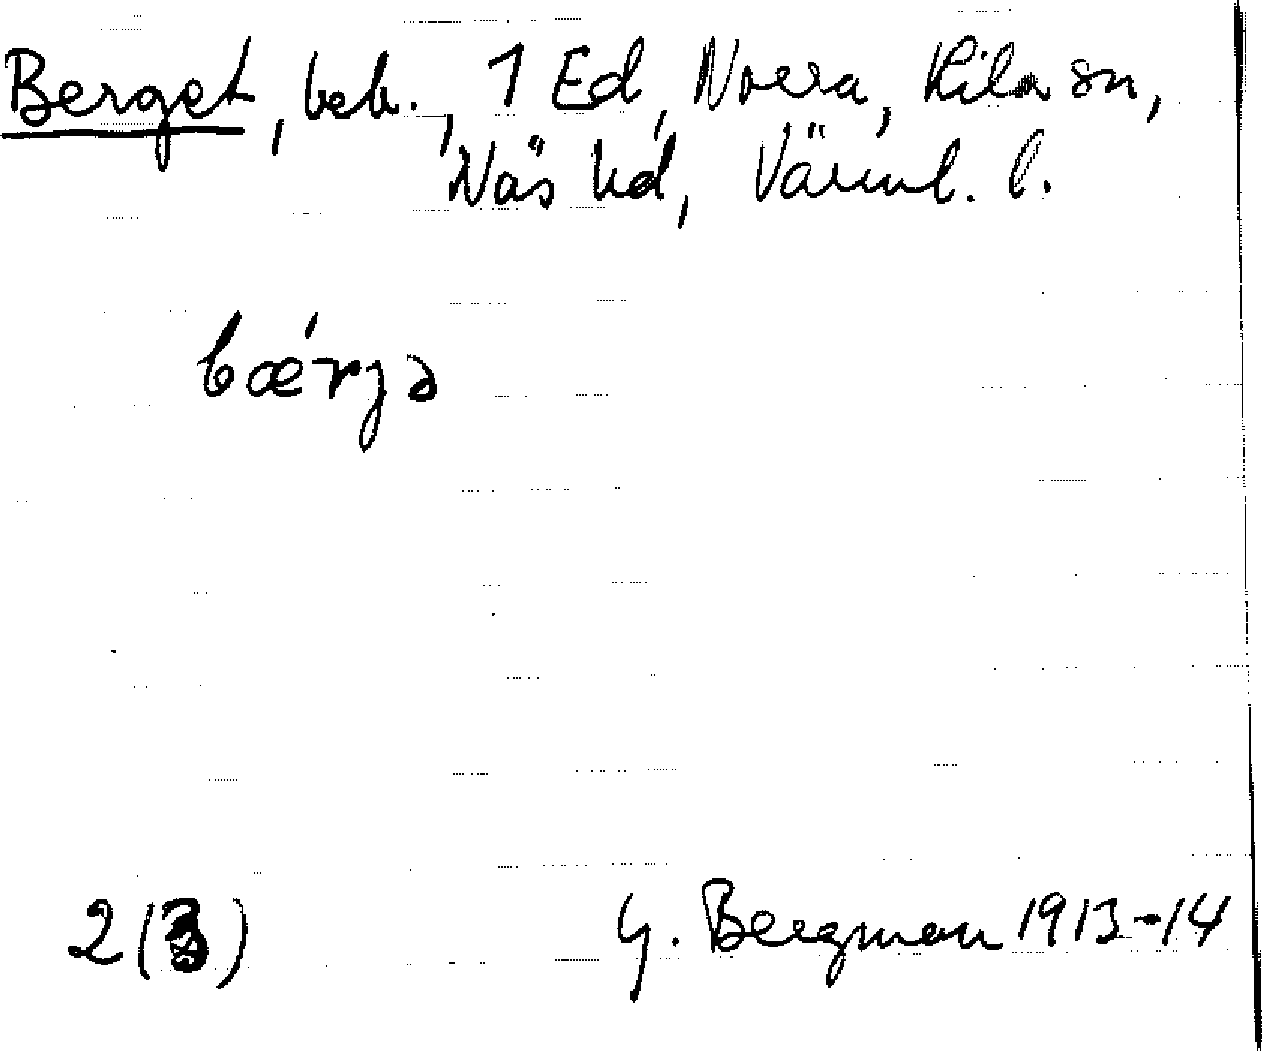 Berget, beb., 1 Ed, Norra, Kila sn,
Näs hd, Värml. l.
bǽrjə
2(3)
G. Bergman 1913-14